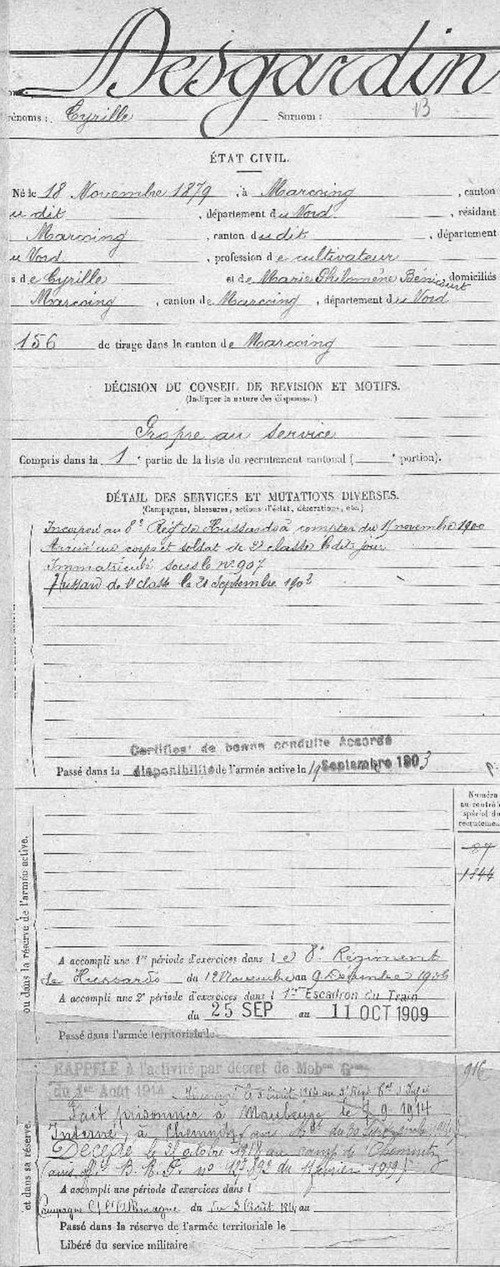 Desgardin
rénoms : Cyrille Surnom :
13
ÉTAT CIVIL.
Né le 18 Novembre 1879, à Marcoing, canton
u dit, département du Nord, résidant
Marcoing, canton du dit, département
u Nord, profession de cultivateur
s de Cyrille et de Marie Philomène domiciliés
Marcoing, canton de Marcoing, département du Nord
156 de tirage dans le canton de Marcoing
DÉCISION DU CONSEIL DE REVISION ET MOTIFS.
(Indiquer la nature des dispenses.)
Propre au service
Compris dans la 1e partie de la liste du recrutement cantonal ( e portion).
DÉTAIL DES SERVICES ET MUTATIONS DIVERSES.
(Campagnes, blessures, actions d'éclat, décorations, etc.)
Incorporé au 8e Régt de Hussards à compter du 15 novembre 1900
Arrivé au corps et soldat de 2e classe le dit jour
Immatriculé sous le no 907
Hussard de 1e classe le 21 Septembre 1902
Certificat de bonne conduite Accordé
Passé dans la disponibilité de l'armée active le 19 Septembre 1903
Numéro
au contrôle
spécial du
recrutement
ou dans la réserve de l'armée active.
87
1844
A accompli une 1re période d'exercices dans le 8e Régiment
de Hussards du 12 Novembre au 9 Décembre 1906
A accompli une 2e période d'exercices dans l 1er Escadron du Train
du 25 SEP au 11 OCT 1909
Passé dans l'armée territoriale
RAPPELÉ à l'activité par décret de Mobon Gale
du 1er Août 1914
916
et dans sa réserve.
Fait prisonnier à Maubeuge le 7 9 1914
Interné à Chemnitz
Décédé le 31 octobre 1918 au camp de Chemnitz
A accompli une période d'exercices dans l
Campagne C/ l'Allemagne du 3 Août 1914 au
Passé dans la réserve de l'armée territoriale le
Libéré du service militaire